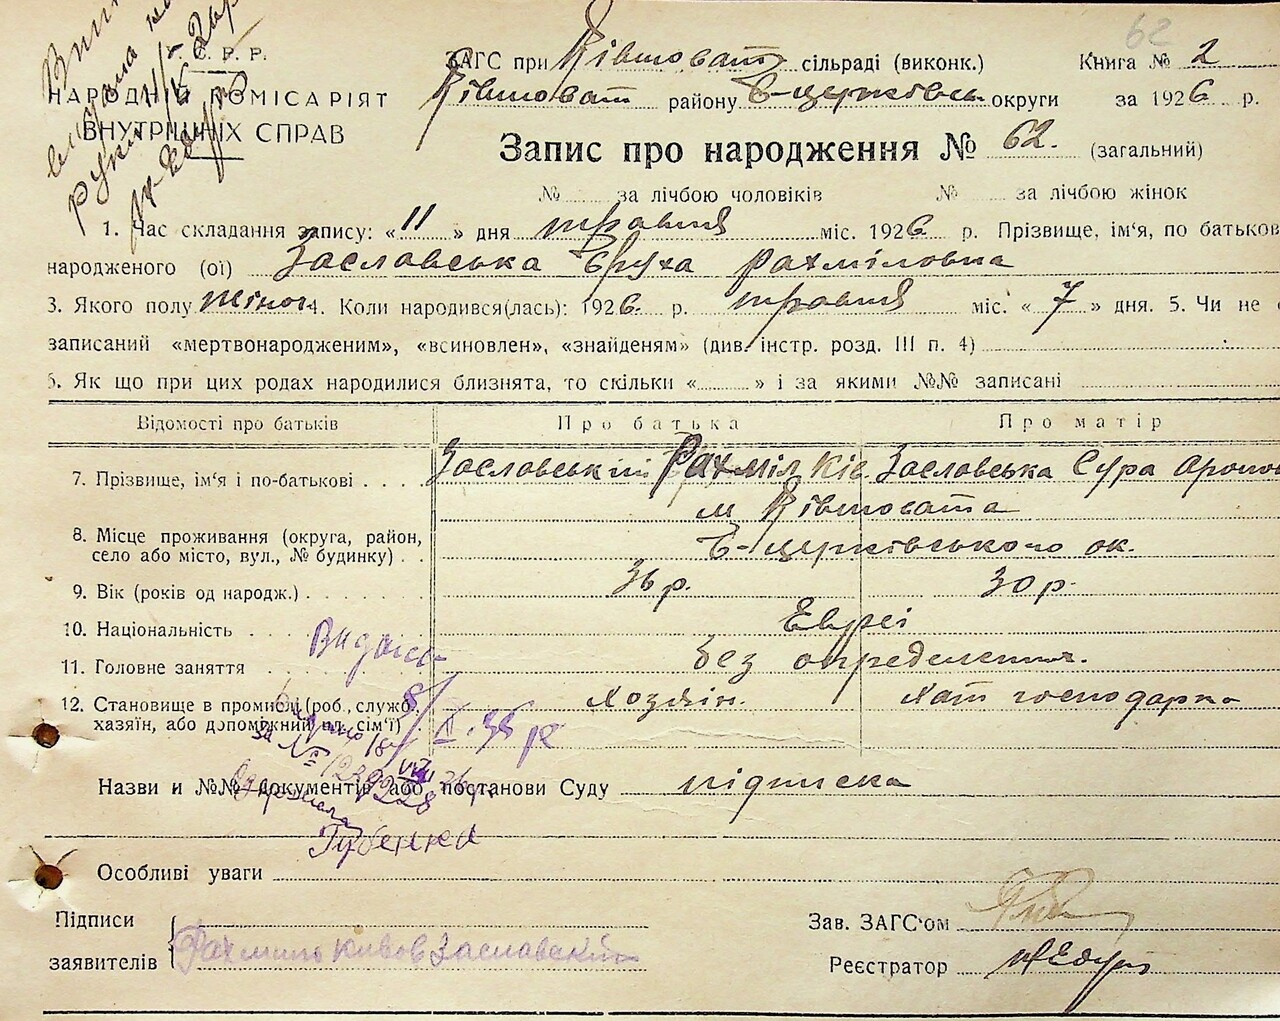 62
С. Р. Р.
НАРОДНІЙ КОМІСАРІЯТ
ВНУТРІШНІХ СПРАВ
ЗАГС при Ківшоват сільраді (виконк.) Книга № 2
Ківшоват району Б-церківськ округи за 1926 р.
Запис про народження № 62. (загальний)
№ за лічбою чоловіків № за лічбою жінок
1. Час складання запису: «11» дня травня міс. 1926 р. Прізвище, ім'я, по батькові
народженого (ої) Заславська Бруха Рахміловна
3. Якого полу жіноч 4. Коли народився(лась): 1926 р. травня міс. «7» дня. 5. Чи не
записаний «мертвонародженим», «всиновлен», «знайденям» (див. інстр. розд. III п. 4)
6. Як що при цих родах народилися близнята, то скільки « » і за якими №№ записані
Відомості про батьків Про батька Про матір
7. Прізвище, ім'я і по-батькові Заславський Рахміл Ків Заславська Сура Аронов
м Ківшовата
8. Місце проживання (округа, район,
село або місто, вул., № будинку) Б-церківського ок.
9. Вік (років од народж.) 36 р. 30 р.
10. Національність Евреі
11. Головне заняття без определения.
12. Становище в промислі (роб., служб.
хазяїн, або допоміжний чл. сім'ї) Хозяін. Хат господарка
Назви и №№ документів або постанови Суду підписка
Губенка
Особливі уваги
Підписи
заявителів Рахмиль Кивов Заславский
Зав. ЗАГС'ом
Реєстратор